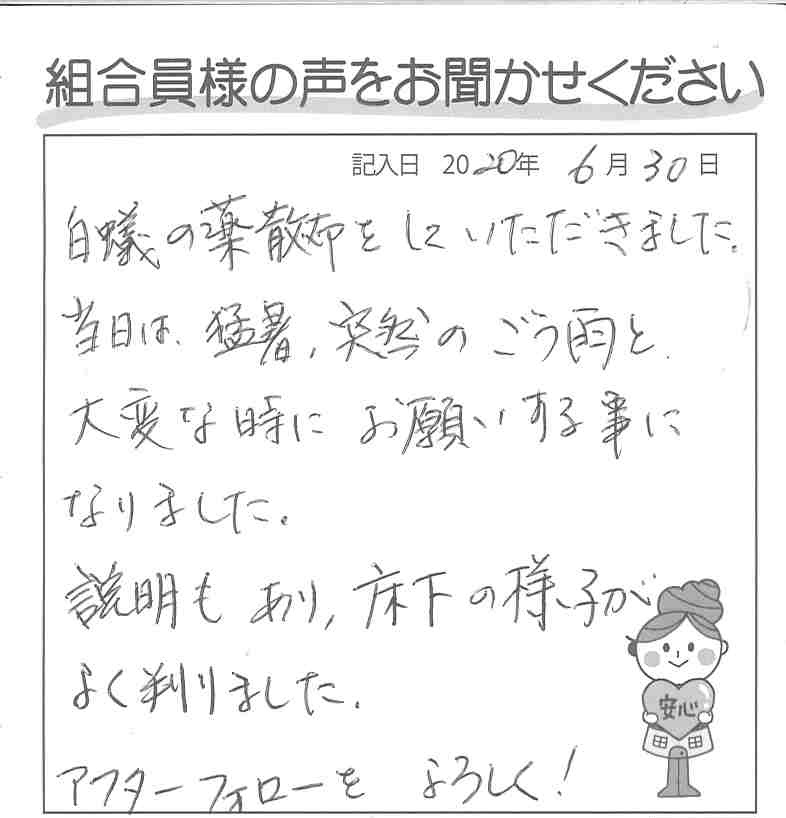 組合員様の声をお聞かせください
記入日 2020年 6月30日
白蟻の薬散布をしていただきました。
当日は、猛暑、突然のごう雨と、
大変な時にお願いする事に
なりました。
説明もあり、床下の様子が
よく判りました。
安心
アフターフォローを よろしく!